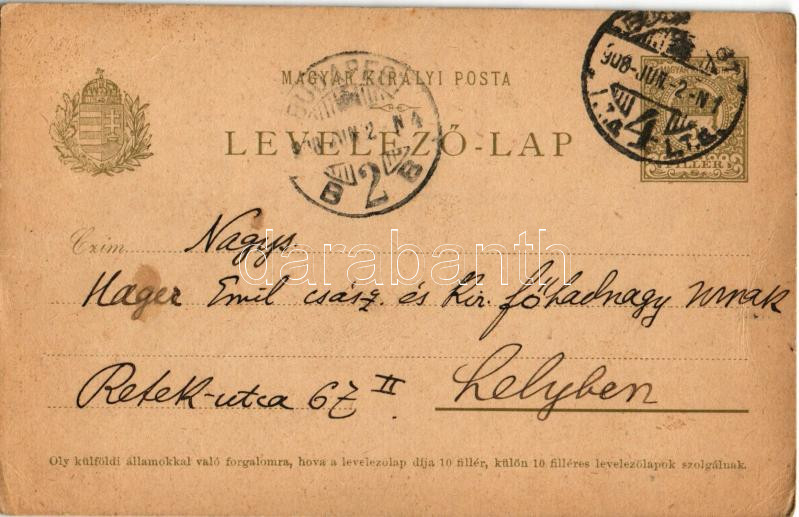 MAGYAR KIRÁLYI POSTA
LEVELEZŐ-LAP
BUDAPEST
2 B B
908-JUN-2-N1
4
FILLÉR
Czim Nagys.
Hager Emil csász. és Kir. főhadnagy Urnak
Retek-utca 67 II. helyben
darabanth.com
Oly külföldi államokkal való forgalomra, hova a levelezőlap díja 10 fillér, külön 10 filléres levelezőlapok szolgálnak.